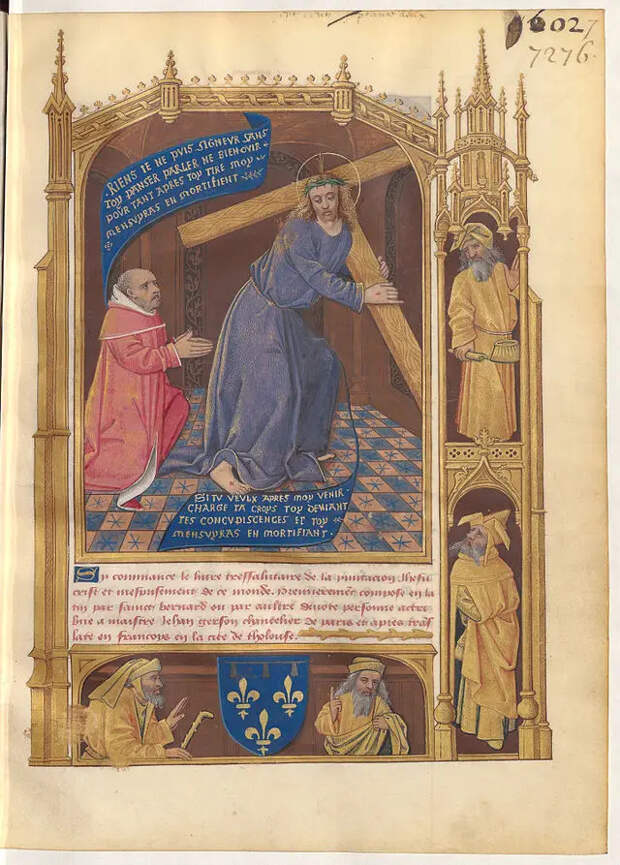 2027
7276.
RIENS IE NE PUIS SIGNEUR SANS
TOY PANSER PARLER NE BIEN OUIR
POUR TANT APRES TOY TIRE MOY
MENSUPRAS EN MORTIFIENT
SI TU VEULX APRES MOY VENIR
CHARGE TA CROYS TOY DENIANT
TES CONCUPISCENSES ET TOY
MENSUPRAS EN MORTIFIANT.
Cy commance le livre tressalutaire de la ymitacion Jhesu
crist et mesprisement de ce monde. Premierement compose en la
tin par sainct bernard ou par aultre devote persone actri
bue a maistre Jehan gerson chancelier de paris et apres trãs
late en francoys en la cite de tholouse.